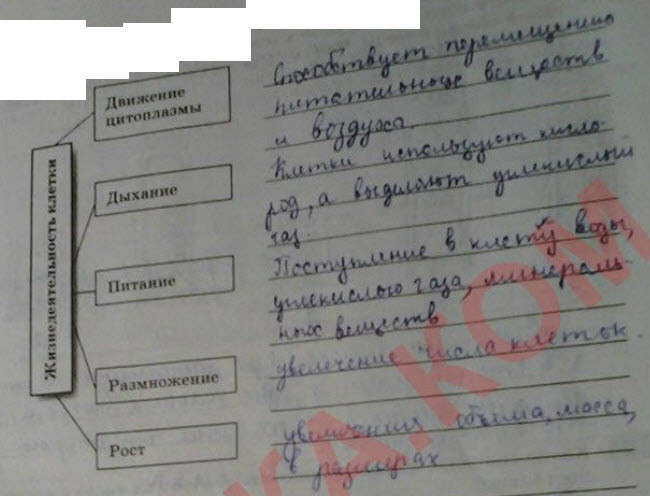 Жизнедеятельность клетки
Движение
цитоплазмы
Способствует перемещению
питательных веществ
и воздуха.
Дыхание
Клетки используют кисло-
род, а выделяют углекислый
газ.
Питание
Поступление в клетку воды,
углекислого газа, минераль-
ных веществ
Размножение
увеличение числа клеток
Рост
увеличения объёма, масса,
в размерах
КА.КОМ